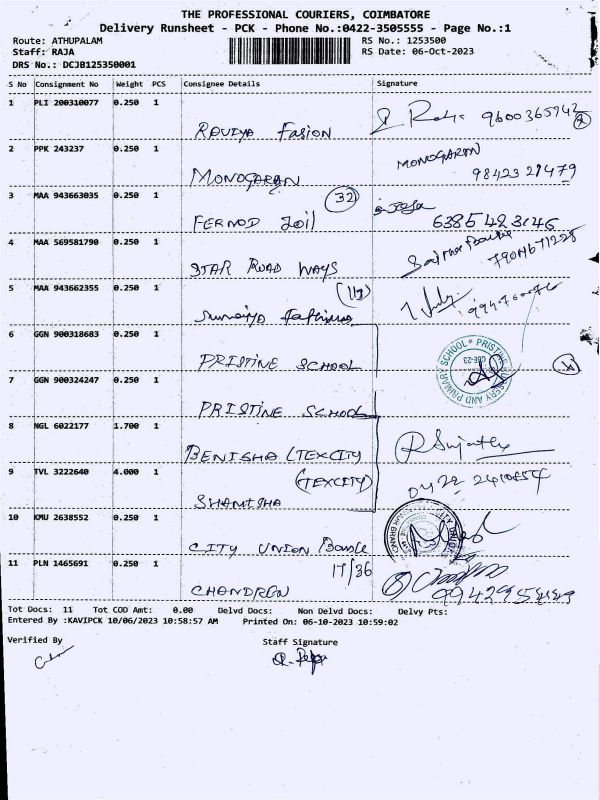 THE PROFESSIONAL COURIERS, COIMBATORE
Delivery Runsheet - PCK - Phone No.:0422-3505555 - Page No.:1
Route: ATHUPALAM RS No.: 1253500
Staff: RAJA RS Date: 06-Oct-2023
DRS No.: DCJB125350001
S No Consignment No Weight PCS Consignee Details Signature
1 PLI 200310077 0.250 1
Fasion 9600365742
2 PPK 243237 0.250 1 MONOGARAN
MONOGARAN 98423 27479
3 MAA 943663035 0.250 1 32
6385423146
4 MAA 569581790 0.250 1
STAR ROAD WAYS
5 MAA 943662355 0.250 1
6 GGN 900318683 0.250 1
PRISTINE SCHOOL
PRISTINE NURSERY AND PRIMARY SCHOOL
CBE-23
7 GGN 900324247 0.250 1
PRISTINE SCHOOL
8 NGL 6022177 1.700 1
BENISHA (TEXCITY
9 TVL 3222640 4.000 1 (TEXCITY)
SHAMISHA 0422 2410854
10 KMU 2638552 0.250 1
CITY UNION Bank
11 PLN 1465691 0.250 1 17/36
CHANDREN
Tot Docs: 11 Tot COD Amt: 0.00 Delvd Docs: Non Delvd Docs: Delvy Pts:
Entered By :KAVIPCK 10/06/2023 10:58:57 AM Printed On: 06-10-2023 10:59:02
Verified By Staff Signature